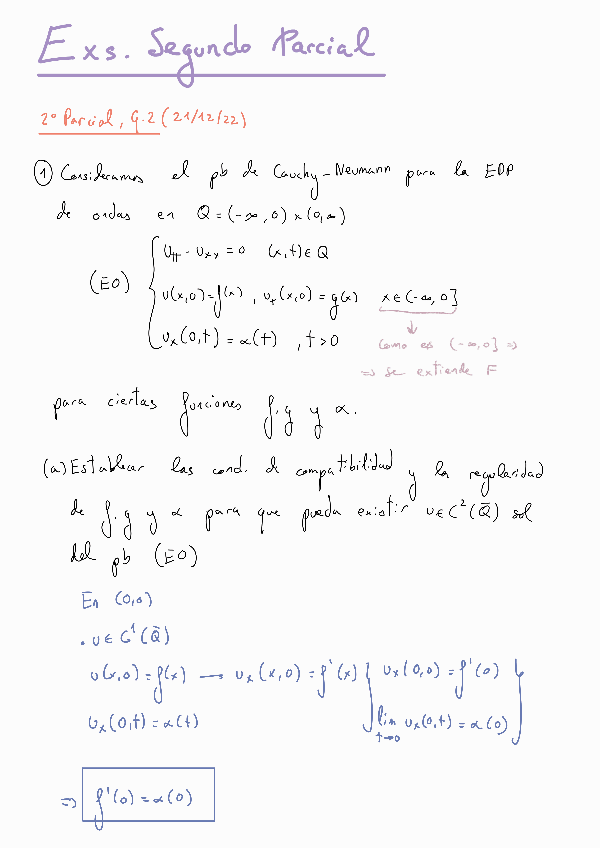 Exs. Segundo Parcial
2º Parcial, G.2 (21/12/22)
① Consideramos el pb de Cauchy-Neumann para la EDP
de ondas en Q = (-∞,0) x (0,∞)
(EO) { u_tt - u_xx = 0 (x,t) ∈ Q
u(x,0) = f(x) , u_t(x,0) = g(x) x ∈ (-∞,0]
u_x(0,t) = α(t) , t > 0
↓
como es (-∞,0] ⇒
⇒ se extiende F
para ciertas funciones f, g y α.
(a) Establecer las cond. de compatibilidad y la regularidad
de f, g y α para que pueda existir u ∈ C²(Q̄) sol
del pb (EO)
En (0,0)
. u ∈ C¹(Q̄)
u(x,0) = f(x) → u_x(x,0) = f'(x) } u_x(0,0) = f'(0) }
u_x(0,t) = α(t) lim_{t→0} u_x(0,t) = α(0)
⇒ f'(0) = α(0)